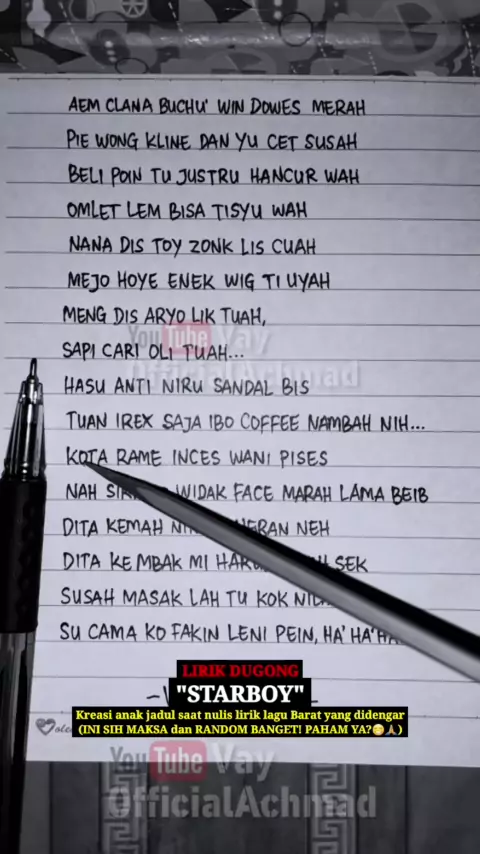 AEM CLANA BUCHU' WIN DOWES MERAH
PIE WONG KLINE DAN YU CET SUSAH
BELI POIN TU JUSTRU HANCUR WAH
OMLET LEM BISA TISYU WAH
NANA DIS TOY ZONK LIS CUAH
MEJO HOYE ENEK WIG TI UYAH
MENG DIS ARYO LIK TUAH,
YouTube Vay
SAPI CARI OLI TUAH...
OfficialAchmad
HASU ANTI NIRU SANDAL BIS
TUAN IREX SAJA IBO COFFEE NAMBAH NIH...
KOTA RAME INCES WANI PISES
NAH WIDAK FACE MARAH LAMA BEIB
DITA KEMAH NEH
DITA KE MBAK MI SEK
SUSAH MASAK LAH TU KOK
SU CAMA KO FAKIN LENI PEIN, HA' HA'
LIRIK DUGONG
"STARBOY"
Kreasi anak jadul saat nulis lirik lagu Barat yang didengar
(INI SIH MAKSA dan RANDOM BANGET! PAHAM YA?😁🙏)
YouTube Vay
OfficialAchmad